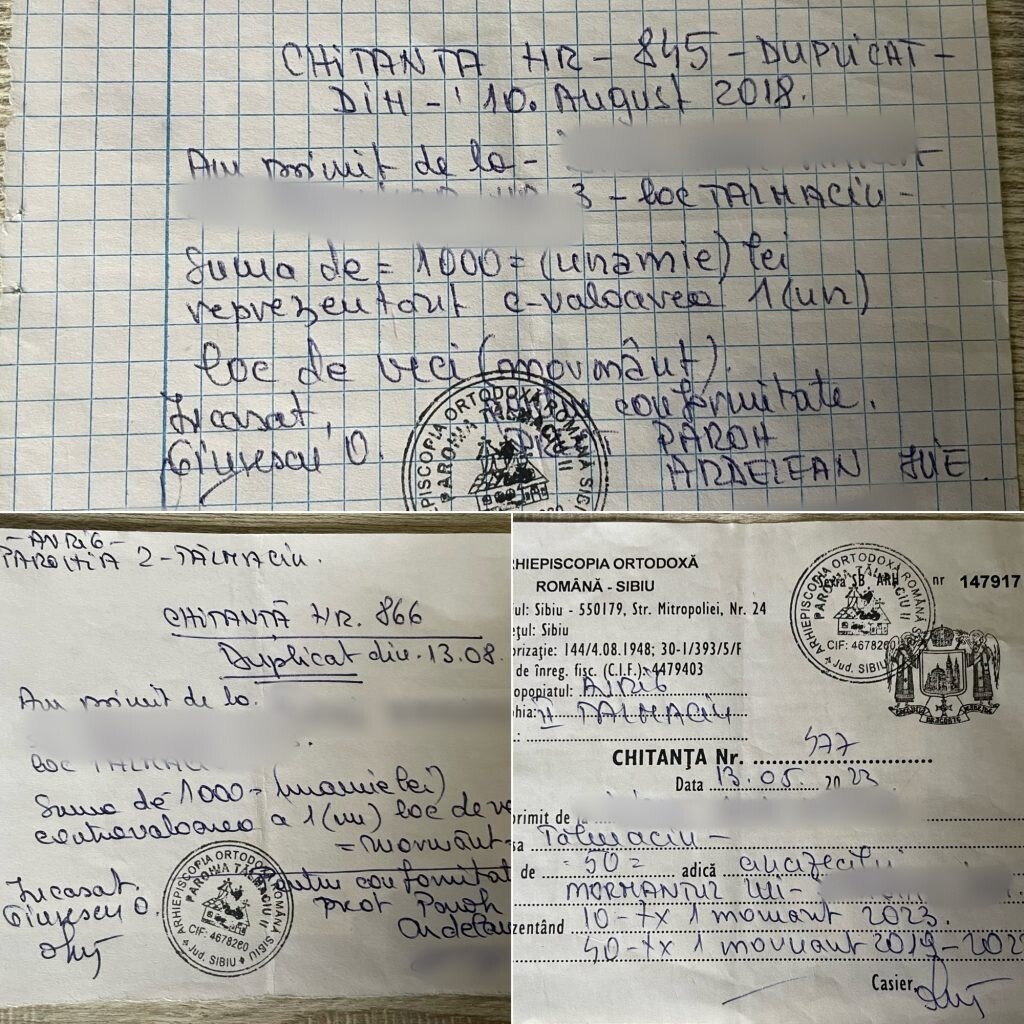 CHITANTA NR - 845 - DUPLICAT -
DIN - 10. August 2018.
Am primit de la -
3 - loc TALMACIU -
Suma de = 1000 = (unamie) lei
reprezentant c-valoarea 1 (un)
loc de veci (mormânt).
Incasat, conformitate.
Giurescu O. PAROH
ARDELEAN ILIE
ARHIEPISCOPIA ORTODOXĂ ROMÂNĂ SIBIU
PAROHIA TĂLMACIU II
- AVRIG -
PAROHIA 2 - TĂLMACIU.
CHITANTĂ NR. 866
Duplicat din 13.08.
Am primit de la.
loc
Suma de 1000 = (unamie lei)
contravaloarea a 1 (un) loc de ve
= mormânt -
Incasat. pentru conformitat
Giurescu O. prot Paroh
Ardelean
ARHIEPISCOPIA ORTODOXĂ ROMÂNĂ SIBIU
PAROHIA TĂLMACIU II
CIF: 4678260
Jud. SIBIU
HIEPISCOPIA ORTODOXĂ
ROMÂNĂ - SIBIU
ul: Sibiu - 550179, Str. Mitropoliei, Nr. 24
ețul: Sibiu
orizație: 144/4.08.1948; 30-1/393/5/F
de înreg. fisc. (C.I.F.) 4479403
opopiatul: AVRIG
hia: II TALMACIU
SB ARH nr 147917
ARHIEPISCOPIA ORTODOXĂ ROMÂNĂ
PAROHIA TĂLMACIU II
CIF: 4678260
Jud. SIBIU
CHITANȚA Nr. 477
Data 13.05. 2023
primit de la
sa Talmaciu -
de = 50 = adică cincizeci lei
MORMANTUL LUI -
zentând 10 - tx 1 mormant 2023.
40 - tx 1 mormant 2019 - 202
Casier,